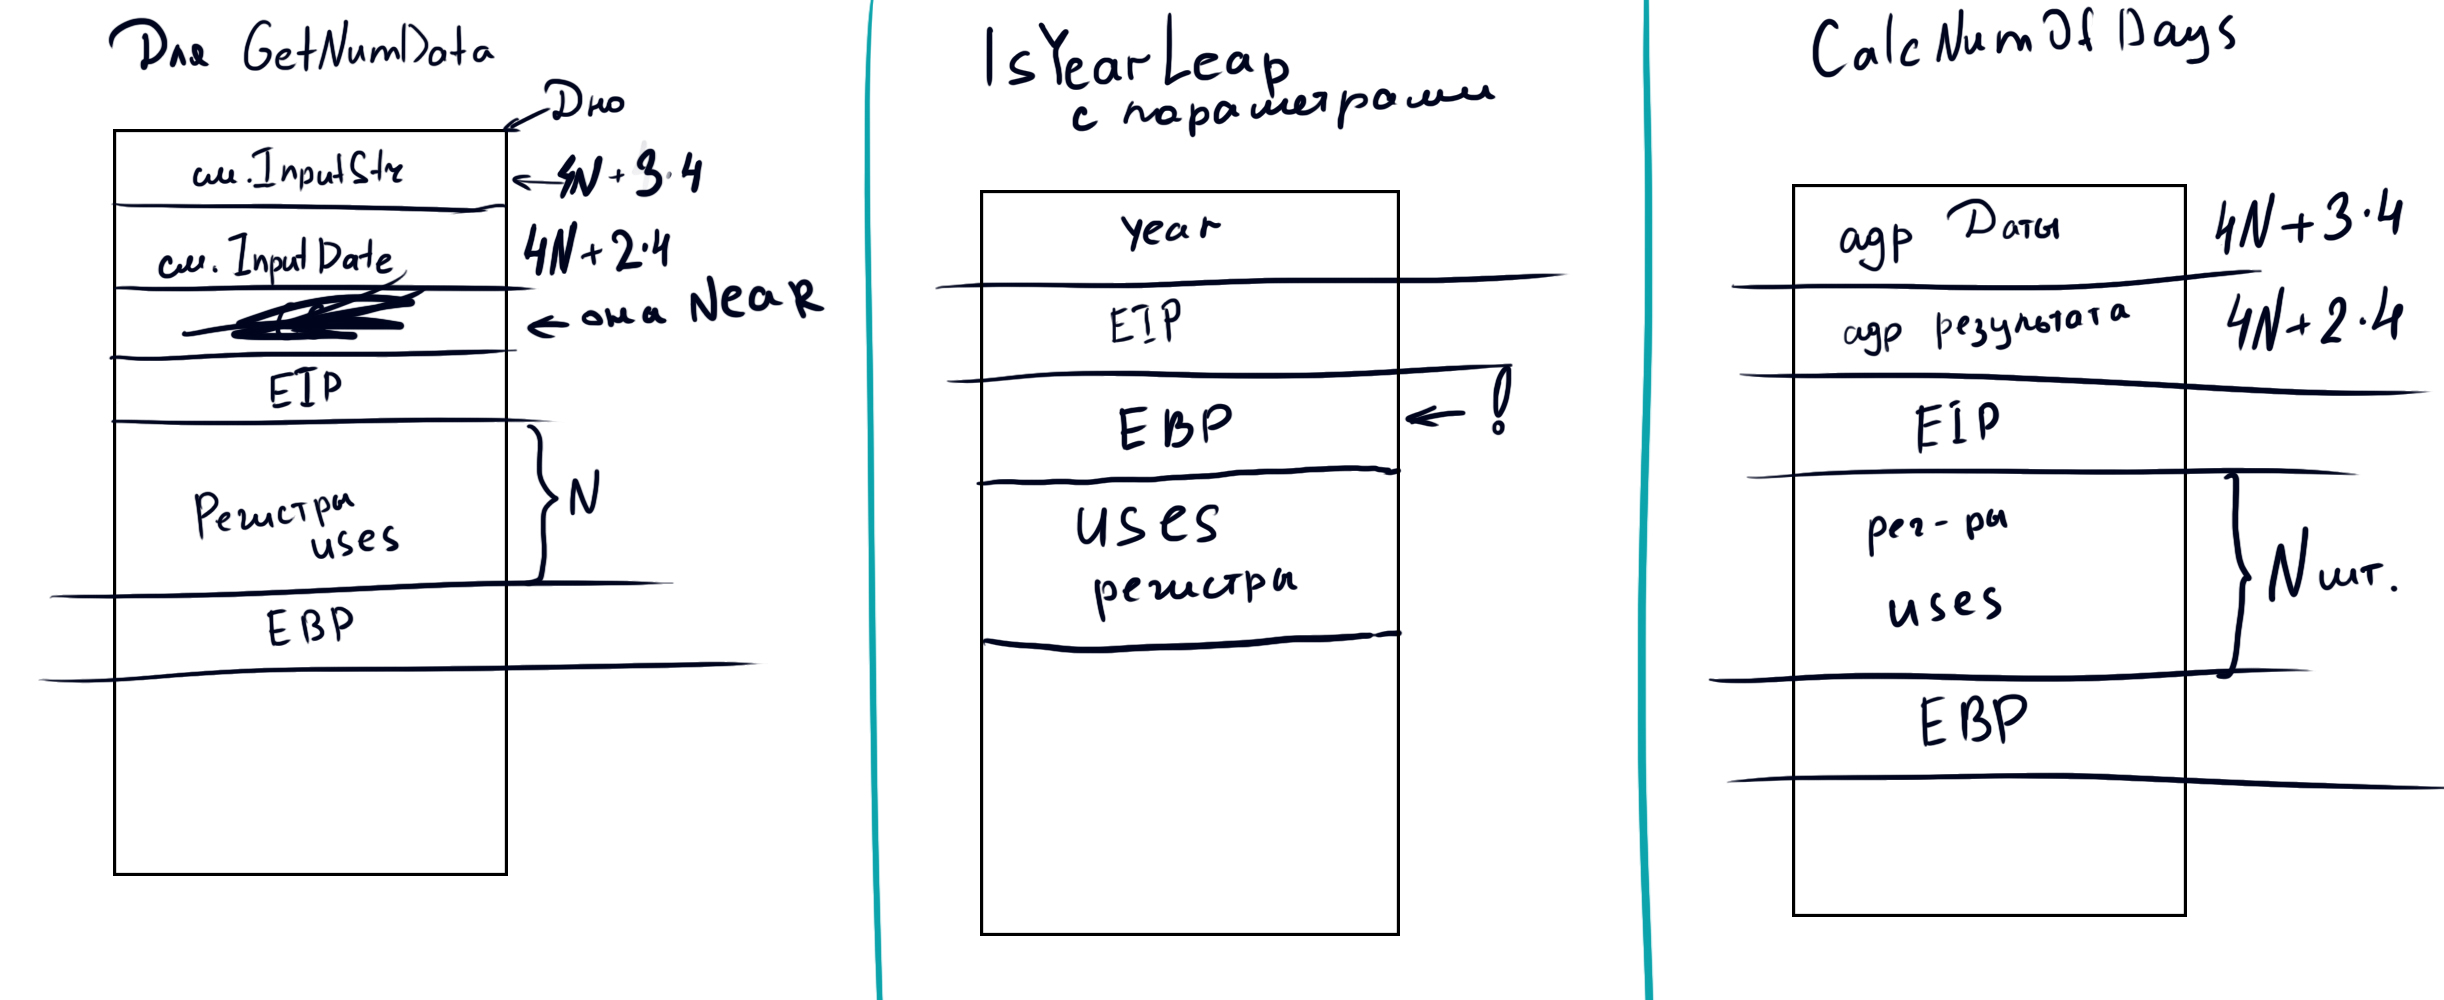 Для GetNumData
Дно
см. InputStr
4N + 3·4
см. InputDate
4N + 2·4
она Near
EIP
Регистры
uses
N
EBP
IsYearLeap
с параметрами
year
EIP
EBP
!
uses
регистры
CalcNumOfDays
адр Даты
4N + 3·4
адр результата
4N + 2·4
EIP
рег-ры
uses
N шт.
EBP